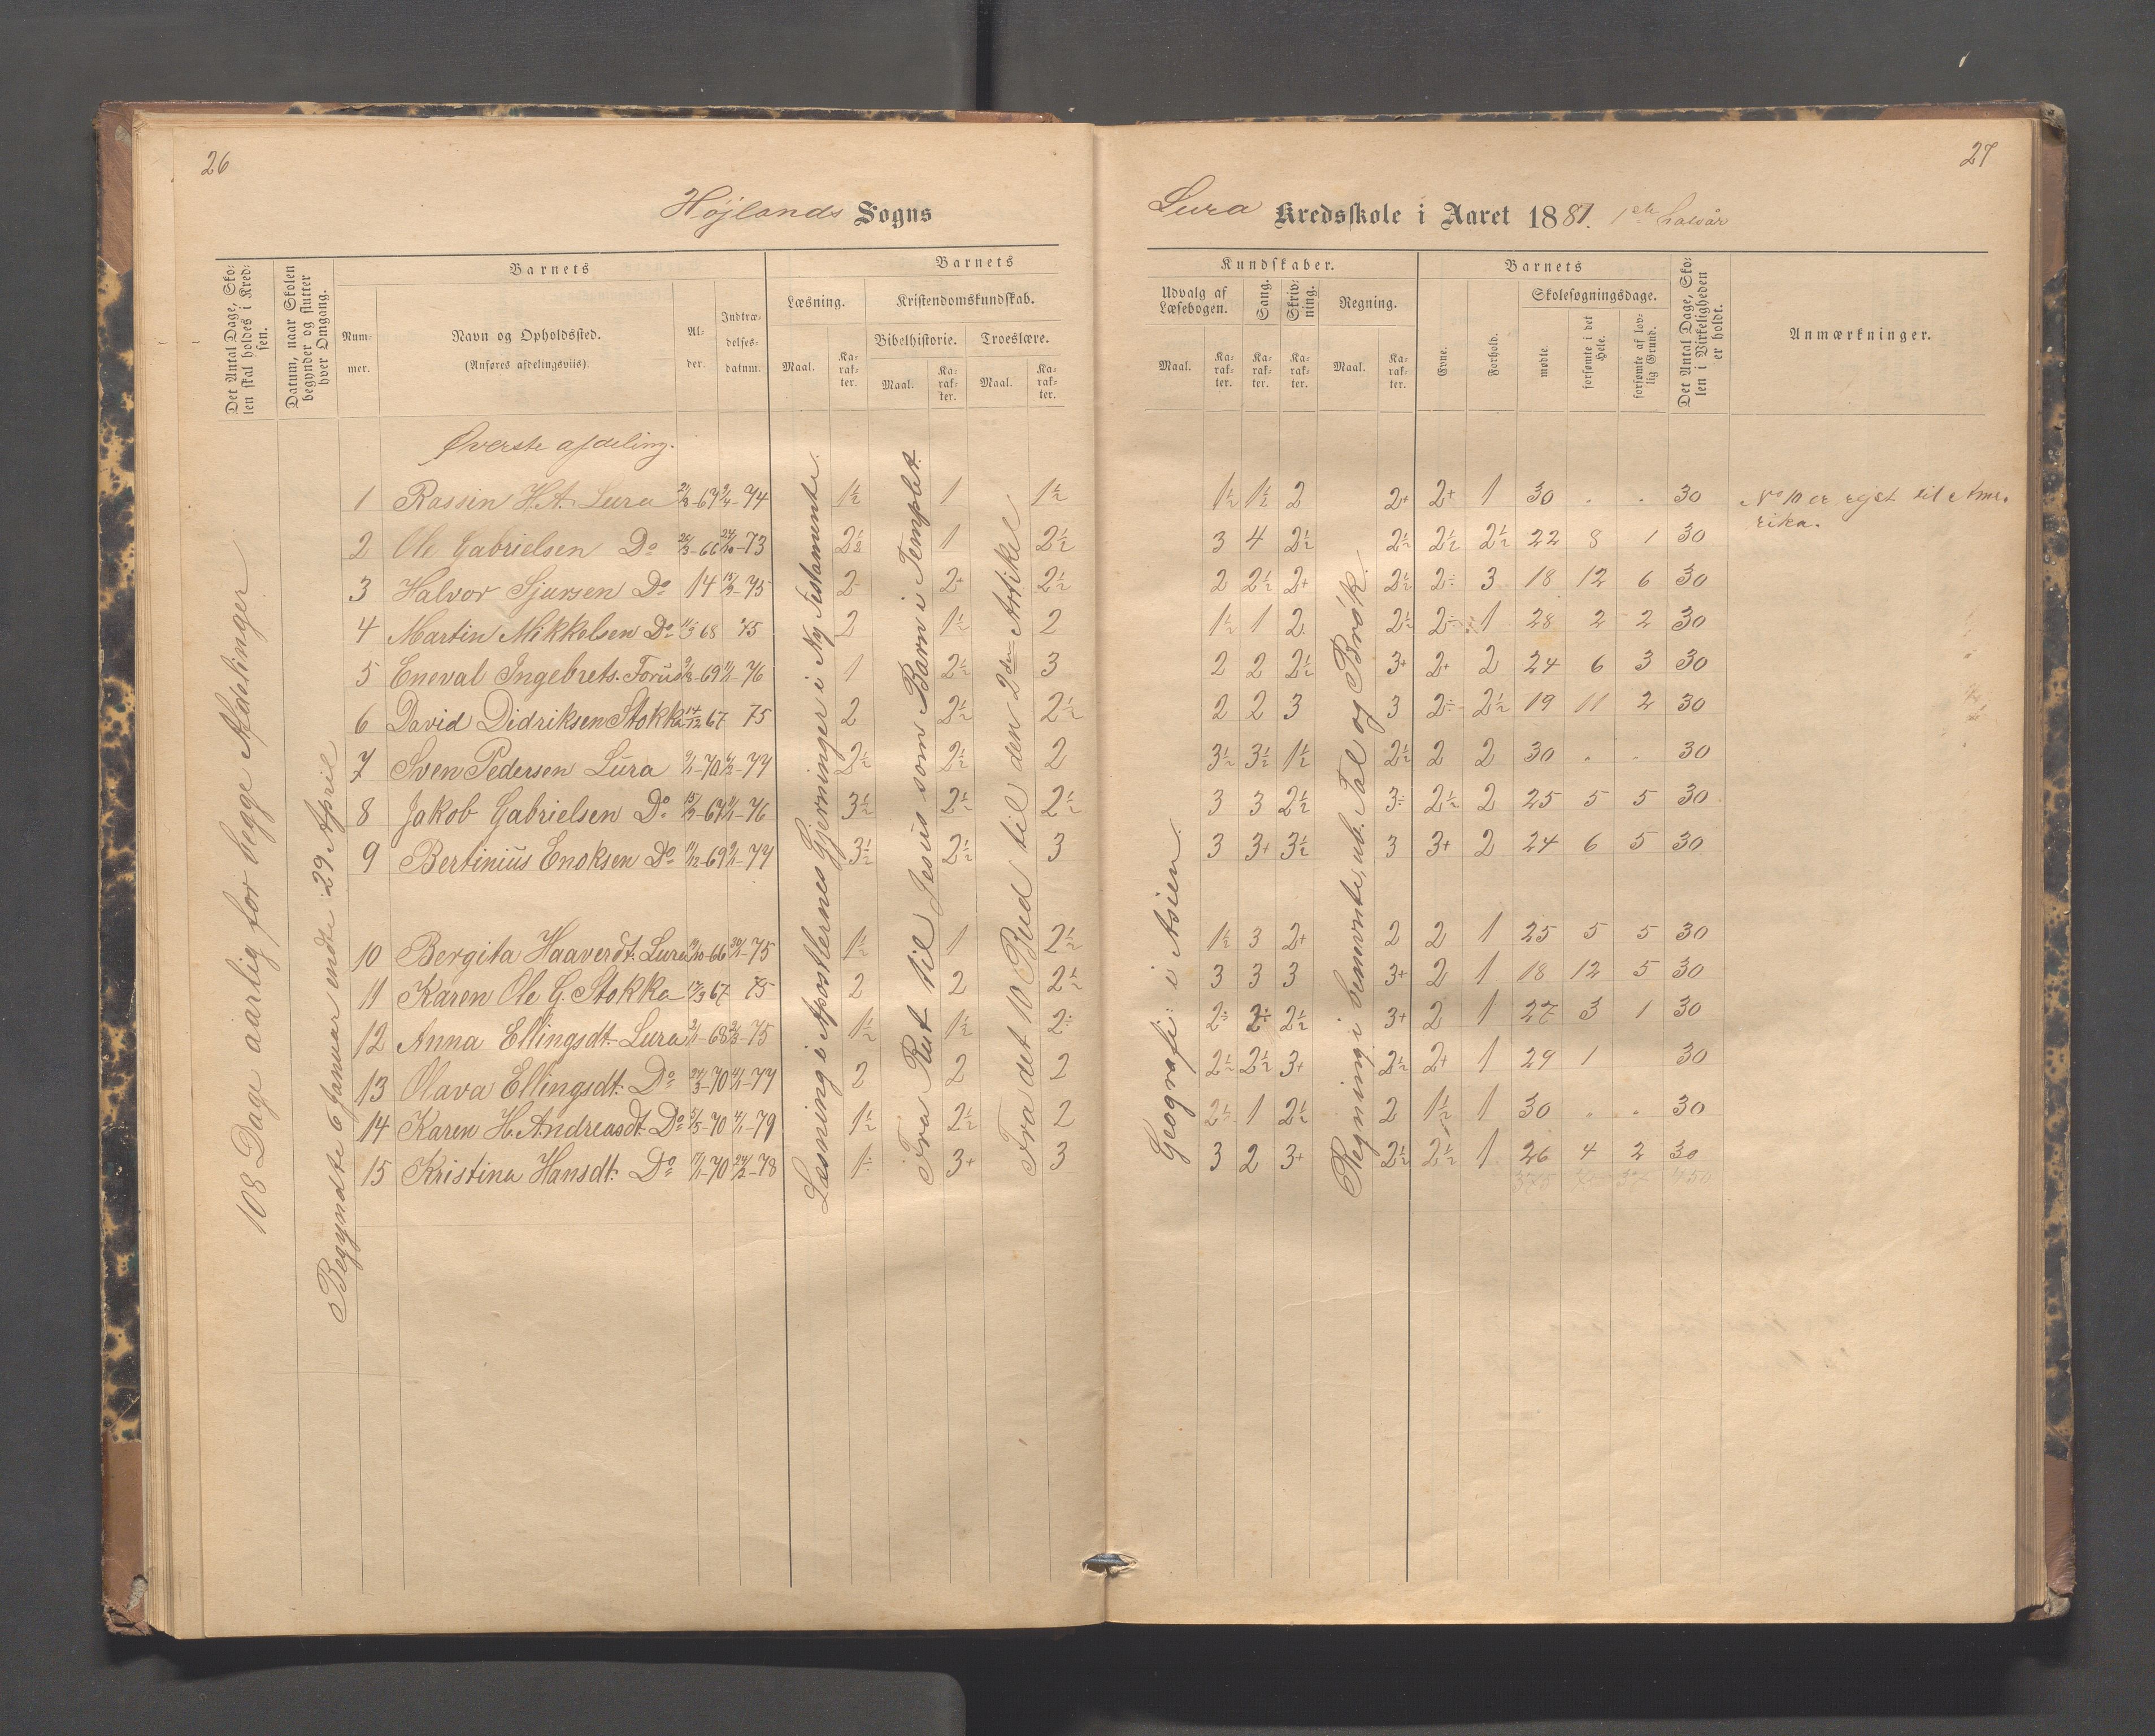 26
Højlands Sogns
Det Antal Dage, Sko-
len skal holdes i Kred-
sen.
Datum, naar Skolen
begynder og slutter
hver Omgang.
Barnets
Num-
mer.
Navn og Opholdssted.
(Anføres afdelingsviis)
Al-
der.
Indtræ-
delses-
datum.
Barnets
Læsning.
Kristendomskundskab.
Bibelhistorie. Troeslære.
Maal. Ka-
rak-
ter.
Maal. Ka-
rak-
ter.
Maal. Ka-
rak-
ter.
108 Dage aarlig for begge Afdelinger
Begyndte 6 Januar endte 29 April
Øverste afdeling.
1 Rassin H.A. Lura 74 1½ 1 1½
2 Ole Gabrielsen Do 73 2½ 1 2½
3 Halvor Sjursen Do 14 75 2- 2+ 2½
4 Martin Mikkelsen Do 68 75 2 1½ 2
5 Eneval Ingebrets. Forus 69 76 1 2½ 3
6 David Didriksen Stokka 14/12 67 75 2 2½ 2½
7 Sven Pedersen Lura 70 77 2½ 2½ 2
8 Jakob Gabrielsen Do 67 76 3½ 2½ 2½
9 Bertinius Enoksen Do 69 77 3½ 2½ 3
10 Bergita Haaverdt. Lura 66 75 1½ 1 2½
11 Karen Ole G. Stokka 67 75 2 2 2½
12 Anna Ellingsdt. Lura 68 75 1½ 1½ 2÷
13 Olava Ellingsdt. Do 70 77 2 2 2
14 Karen H. Andreasdt. Do 5/5-70 4/1-79 1½ 2½ 2
15 Kristina Hansdt. Do 70 78 1÷ 3+ 3
Læsning i Apostlernes Gjerninger i Ny Testamente.
Fra Rut til Jesus som Barn i Templet.
Fra det 10 Bud til den 2den Artikel
27
Lura Kredsskole i Aaret 1881. 1ste halvår
Kundskaber.
Udvalg af
Læsebogen.
Sang.
Skriv-
ning.
Regning.
Maal. Ka-
rak-
ter.
Ka-
rak-
ter.
Ka-
rak-
ter.
Maal. Ka-
rak-
ter.
Barnets
Evne.
Forhold.
Skolesøgningsdage.
mødte
forsømte i det
Hele.
forsømte af lov-
lig Grund.
Det Antal Dage, Sko-
len i Virkeligheden
er holdt.
Anmærkninger.
Geografi: i Asien.
Regning i benævnte, ub. Tal og Brøk.
1½ 1½ 2 2+ 2+ 1 30 . . 30 No 10 er rejst til Ame-
rika.
3 4 2½ 2½ 2½ 2½ 22 8 1 30
2 2½ 2+ 2½ 2÷ 3 18 12 6 30
1½ 1 2 2½ 2÷ 1 28 2 2 30
2 2 2½ 3+ 2+ 2 24 6 3 30
2 2 3 3 2÷ 2½ 19 11 2 30
3½ 3½ 1½ 2½ 2 2 30 . . 30
3 3 2½ 3÷ 2½ 2 25 5 5 30
3 3+ 3½ 3 3+ 2 24 6 5 30
1½ 3 2+ 2 2 1 25 5 5 30
3 3 3 3+ 2 1 18 12 5 30
2÷ 2÷ 2½ 3+ 2 1 27 3 1 30
2½ 2½ 3+ 2½ 2+ 1 29 1 30
2½ 1 2½ 2 1½ 1 30 " " 30
3 2 3+ 2½ 2½ 1 26 4 2 30
375 37 450